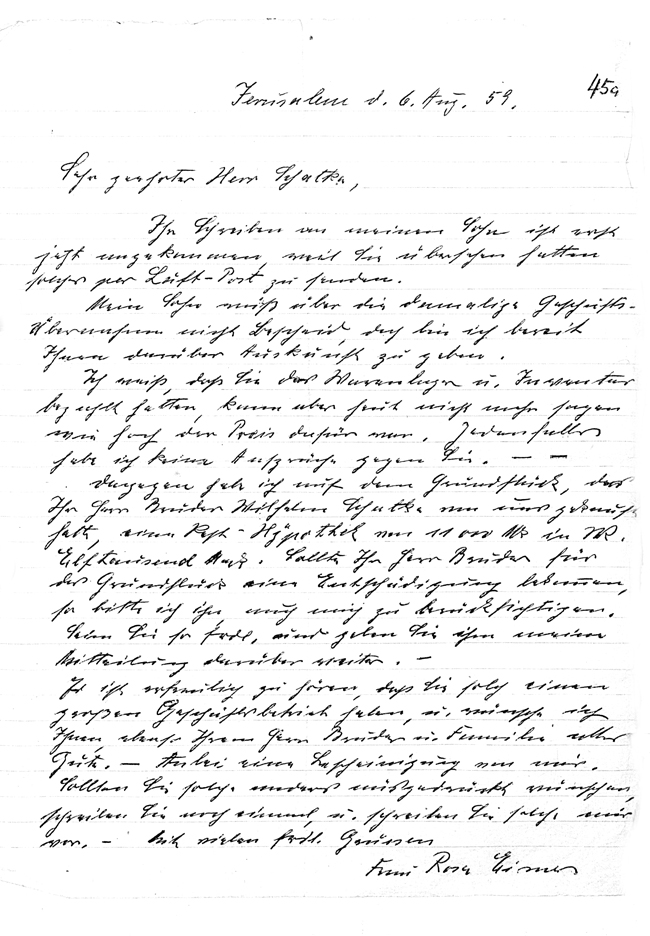 45a
Jerusalem d. 6. Aug. 59.
Sehr geehrter Herr Schatka,
Ihr Schreiben an meinen Sohn ist erst
jetzt angekommen, weil Sie übersehen hatten
solches per Luft-Post zu senden.
Mein Sohn weiß über die damalige Geschäfts-
Übernahme nicht Bescheid, doch bin ich bereit
Ihnen darüber Auskunft zu geben.
Ich weiß, daß Sie das Warenlager u. Inventar
bezahlt hatten, kann aber heut nicht mehr sagen
wie hoch der Preis dafür war. Jedenfalls
habe ich keine Ansprüche gegen Sie. — —
Dagegen habe ich auf dem Grundstück, das
Ihr Herr Bruder Wilhelm Schatka von uns gekauft
hatte, eine Rest-Hÿpothek von 11000 Mk in W.
Elftausend Mark. Sollte Ihr Herr Bruder für
das Grundstück eine Entschädigung bekommen,
so bitte ich ihn auch mich zu berücksichtigen.
Seien Sie so frdl, und geben Sie ihm meine
Mitteilung darüber weiter. —
Es ist erfreulich zu hören, daß Sie solch einen
großen Geschäftsbetrieb haben, u. wünsche ich
Ihnen, ebenso Ihrem Herrn Bruder u. Familie alles
Gute. — Anbei eine Bescheinigung von mir.
Sollten Sie solche anders ausgedrückt wünschen,
schreiben Sie noch einmal, u. schreiben Sie solche mir
vor. — Mit vielen frdl. Grüssen
Frau Rosa